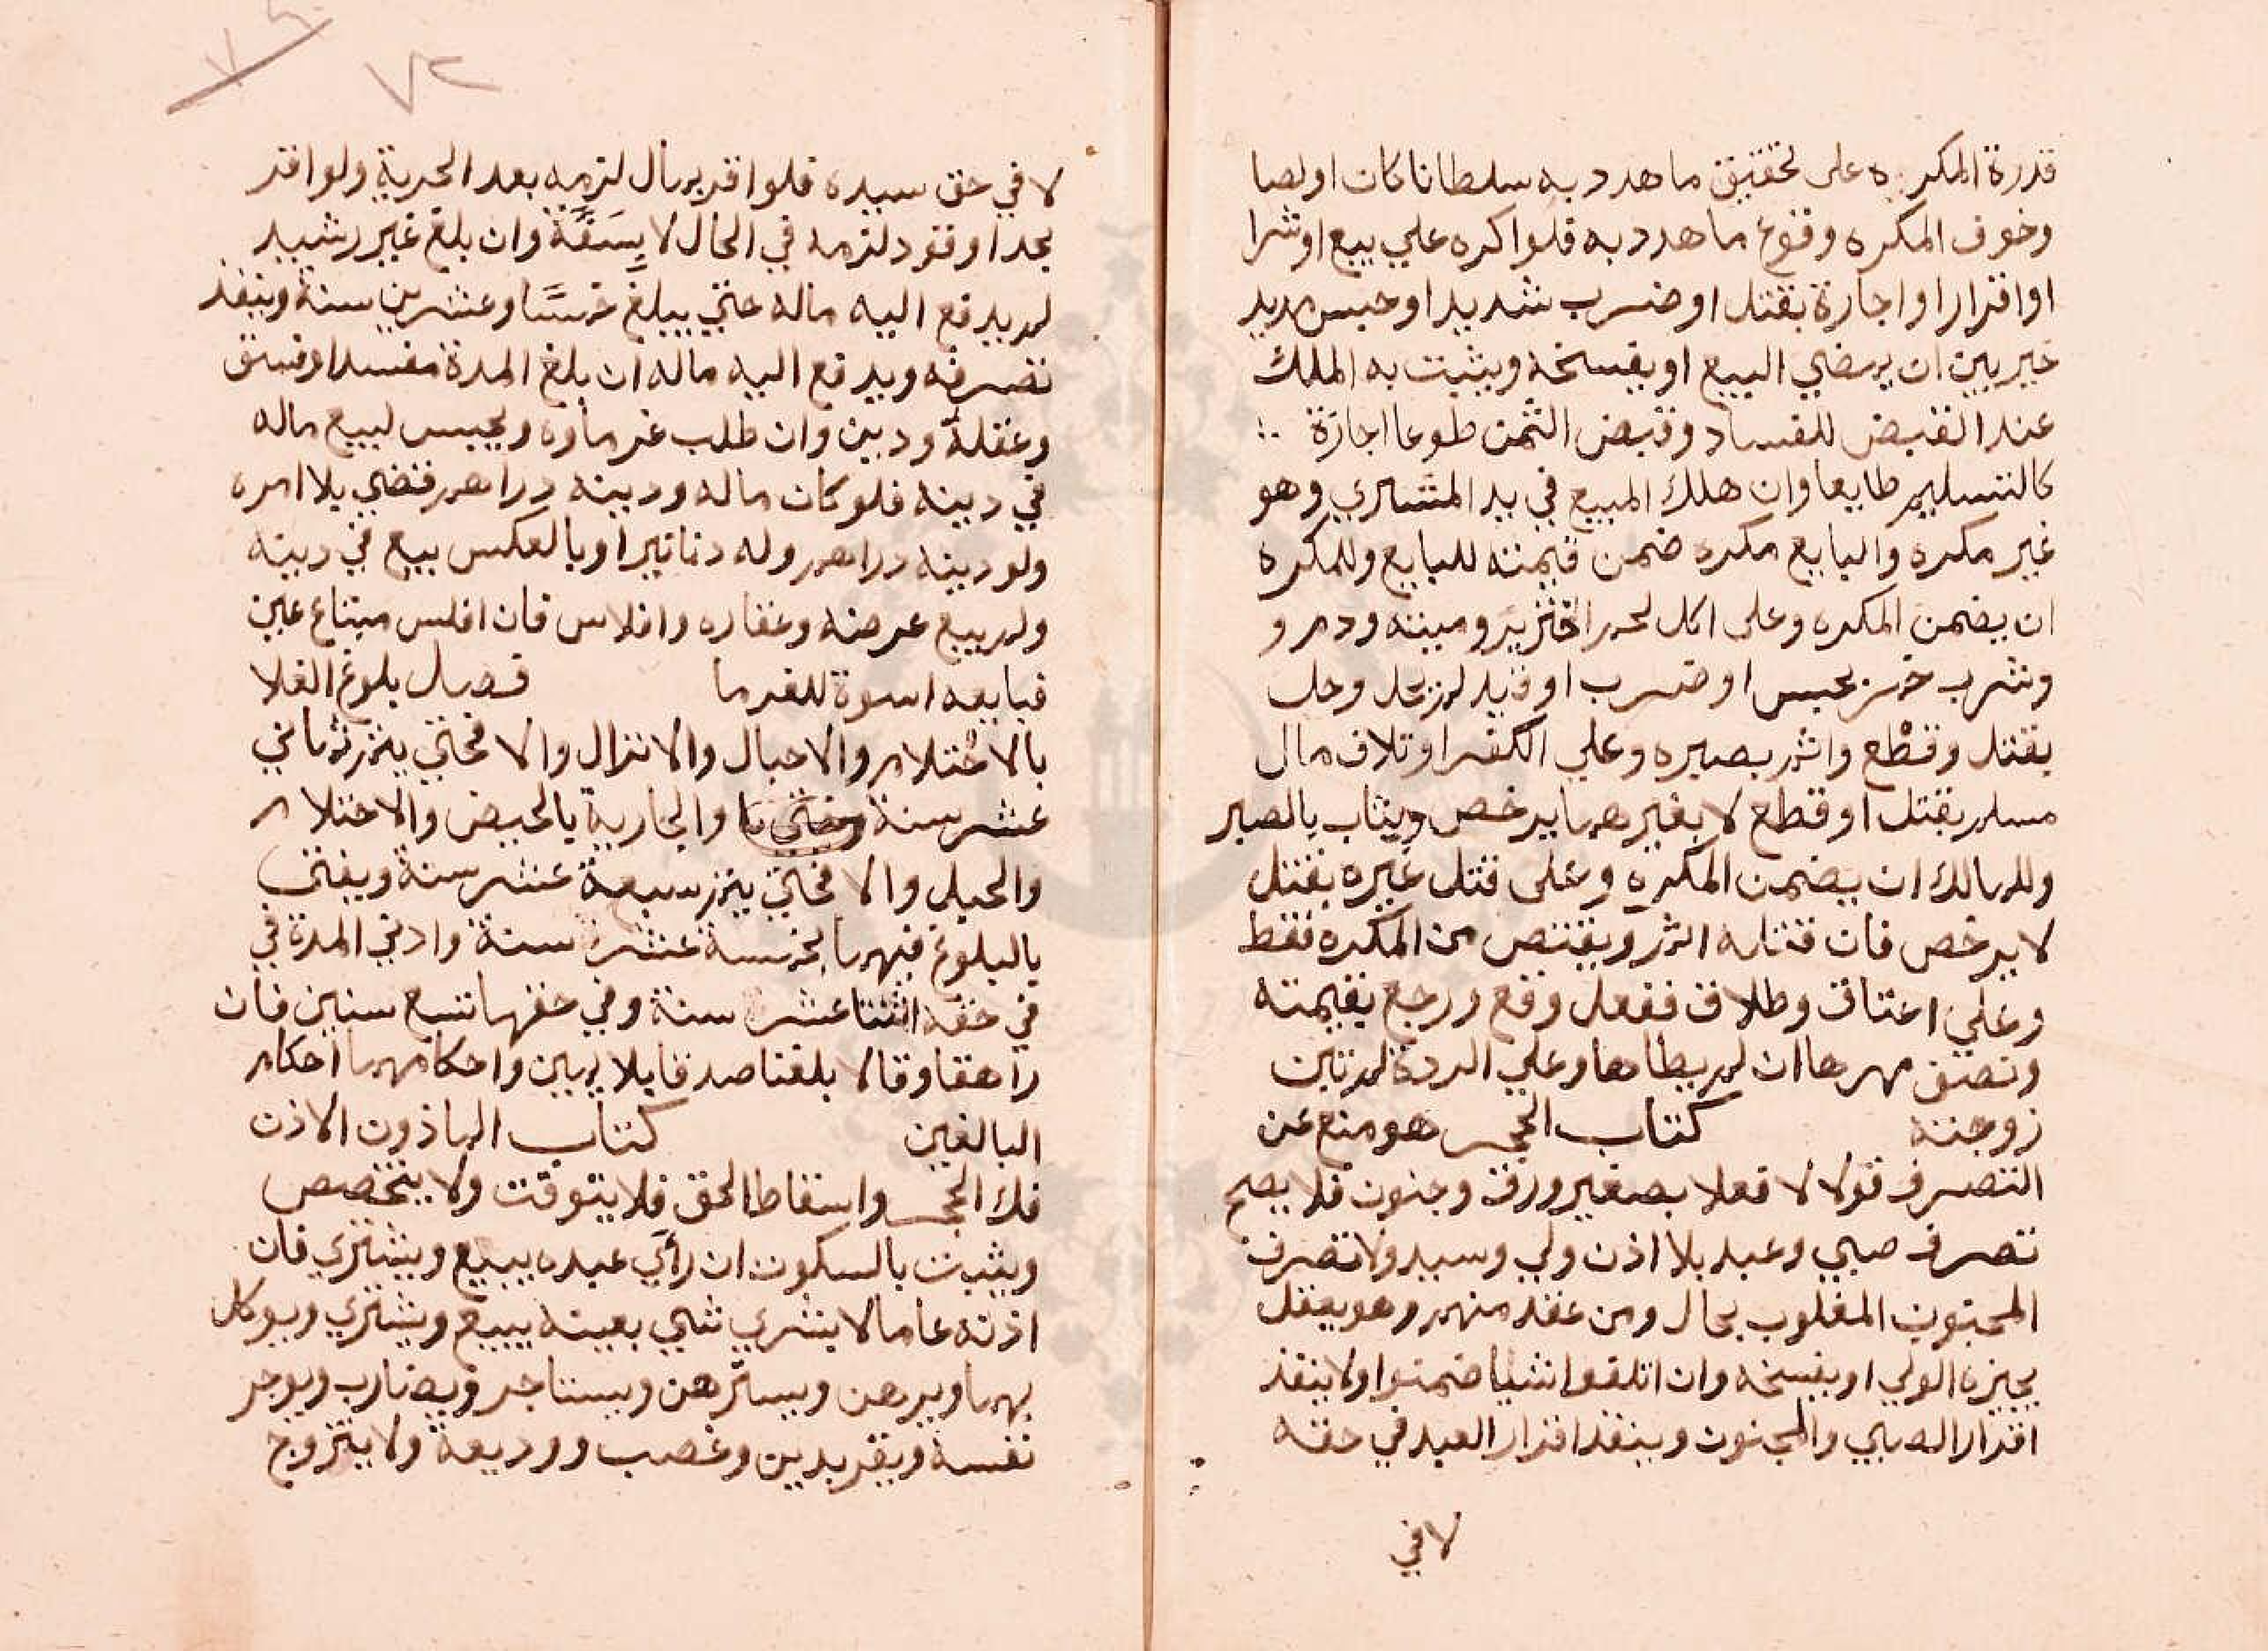 قدرة المكره على تحقيق ما هدد به سلطانا كان او لصا
وخوف المكره وقوع ما هدد به فلو اكره علي بيع او شرا
او اقرار او اجارة بقتل او ضرب شديد او حبس مديد
خير بين ان يمضي البيع او يفسخه ويثبت به الملك
عند القبض للفساد وقبض الثمن طوعا اجازة
كالتسليم طايعا وان هلك المبيع في يد المشتري وهو
غير مكره والبايع مكره ضمن قيمته للبايع وللمكره
ان يضمن المكره وعلى اكل لحم الخنزير وميتة ودم و
وشرب خمر بحبس او ضرب او قيد لم يحل وحل
بقتل وقطع واثم بصبره وعلي الكفر او تلاف مال
مسلم بقتل او قطع لا بغيرهما يرخص ويثاب بالصبر
وللمالك ان يضمن المكره وعلى قتل غيره بقتل
لا يرخص فان قتله اثم ويقتص من المكره فقط
وعلي اعتاق وطلاق ففعل وقع ورجع بقيمته
ونصف مهرها ان لم يطاها وعلي الردة لم تبن
زوجته كتاب الحجر هو منع عن
التصرف قولا لا فعلا بصغير ورق وجنون فلا يصح
تصرف صبي وعبد بلا اذن ولي وسيد ولا تصرف
المجنون المغلوب بحال ومن عقد منهم وهو يعقل
يجيزه الولي او يفسخه وان اتلفوا شيا ضمنوا ولا ينفذ
اقرار الصبي والمجنون وينفذ اقرار العبد في حقه
لا في
٧٢
لا في حق سيده فلو اقر بمال لزمه بعد الحرية ولو اقر
بحد او قود لزمه في الحال لا بسفه وان بلغ غير رشيد
لم يدفع اليه ماله حتي يبلغ خمسا وعشرين سنة وينفذ
تصرفه ويدفع اليه ماله ان بلغ المدة مفسدا وفسق
وغفلة ودين وان طلب غرماؤه ويحبس لبيع ماله
في دينه فلو كان ماله ودينه دراهم قضي بلا امره
ولو دينه دراهم وله دنانير او بالعكس بيع في دينه
ولم يبع عرضه وعقاره وافلاس فان افلس مبتاع عين
فبايعه اسوة للغرما فصل بلوغ الغلا
بالاحتلام والاحبال والانزال والا فحتي يتم ثماني
عشر سنة والجارية بالحيض والاحتلام
والحبل والا فحتي يتم سبعة عشر سنة ويفتي
بالبلوغ فيهما بخمسة عشرة سنة وادني المدة في
في حقه اثنتا عشر سنة وفي حقها تسع سنين فان
راهقا وقالا بلغنا صدقا بلا يمين واحكامهما احكام
البالغين كتاب الماذون الاذن
فك الحجر واسقاط الحق فلا يتوقت ولا يتخصص
ويثبت بالسكوت ان رأي عبده يبيع ويشتري فان
اذنه عاما لا يشري شي بعينه يبيع ويشتري ويوكل
بهما ويرهن ويسترهن ويستاجر ويضارب ويوجر
نفسه ويقر بدين وغصب ووديعة ولا يتزوج